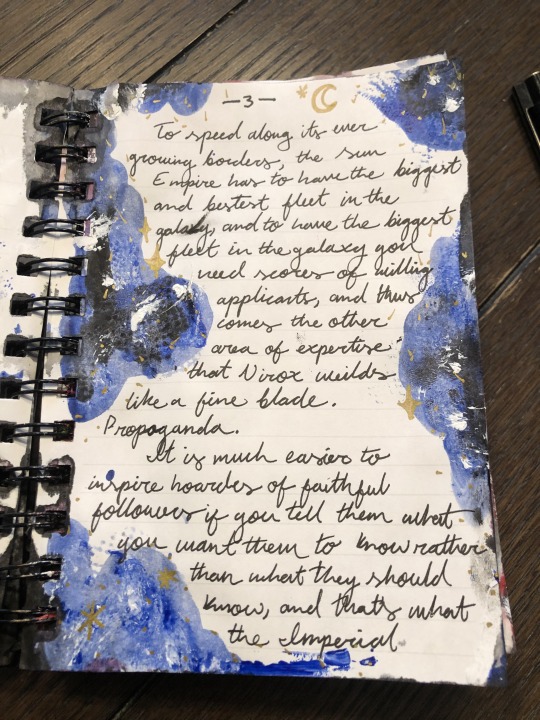 —3—
To speed along its ever
growing borders, the sun
Empire has to have the biggest
and bestest fleet in the
galaxy, and to have the biggest
fleet in the galaxy you
need scores of willing
applicants, and thus
comes the other
area of expertise
that Nirox weilds
like a fine blade.
Propaganda.
It is much easier to
inspire hoardes of faithful
followers if you tell them what
you want them to know rather
than what they should
know, and thats what
the Imperial